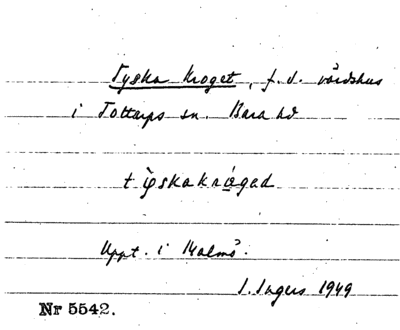 Tyska kroget, f.d. värdshus
i Tottarps sn. Bara hd
tyskakrøged
Uppt. i Malmö.
I. Ingers 1949
Nr 5542.